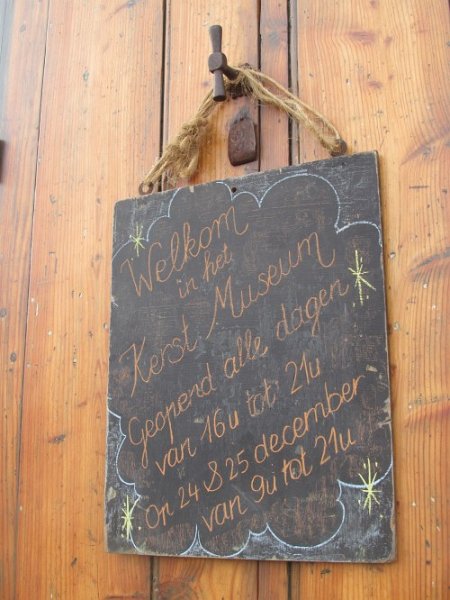 Welkom
in het
Kerst Museum
Geopend alle dagen
van 16u tot 21u
Op 24 & 25 december
van 9u tot 21u